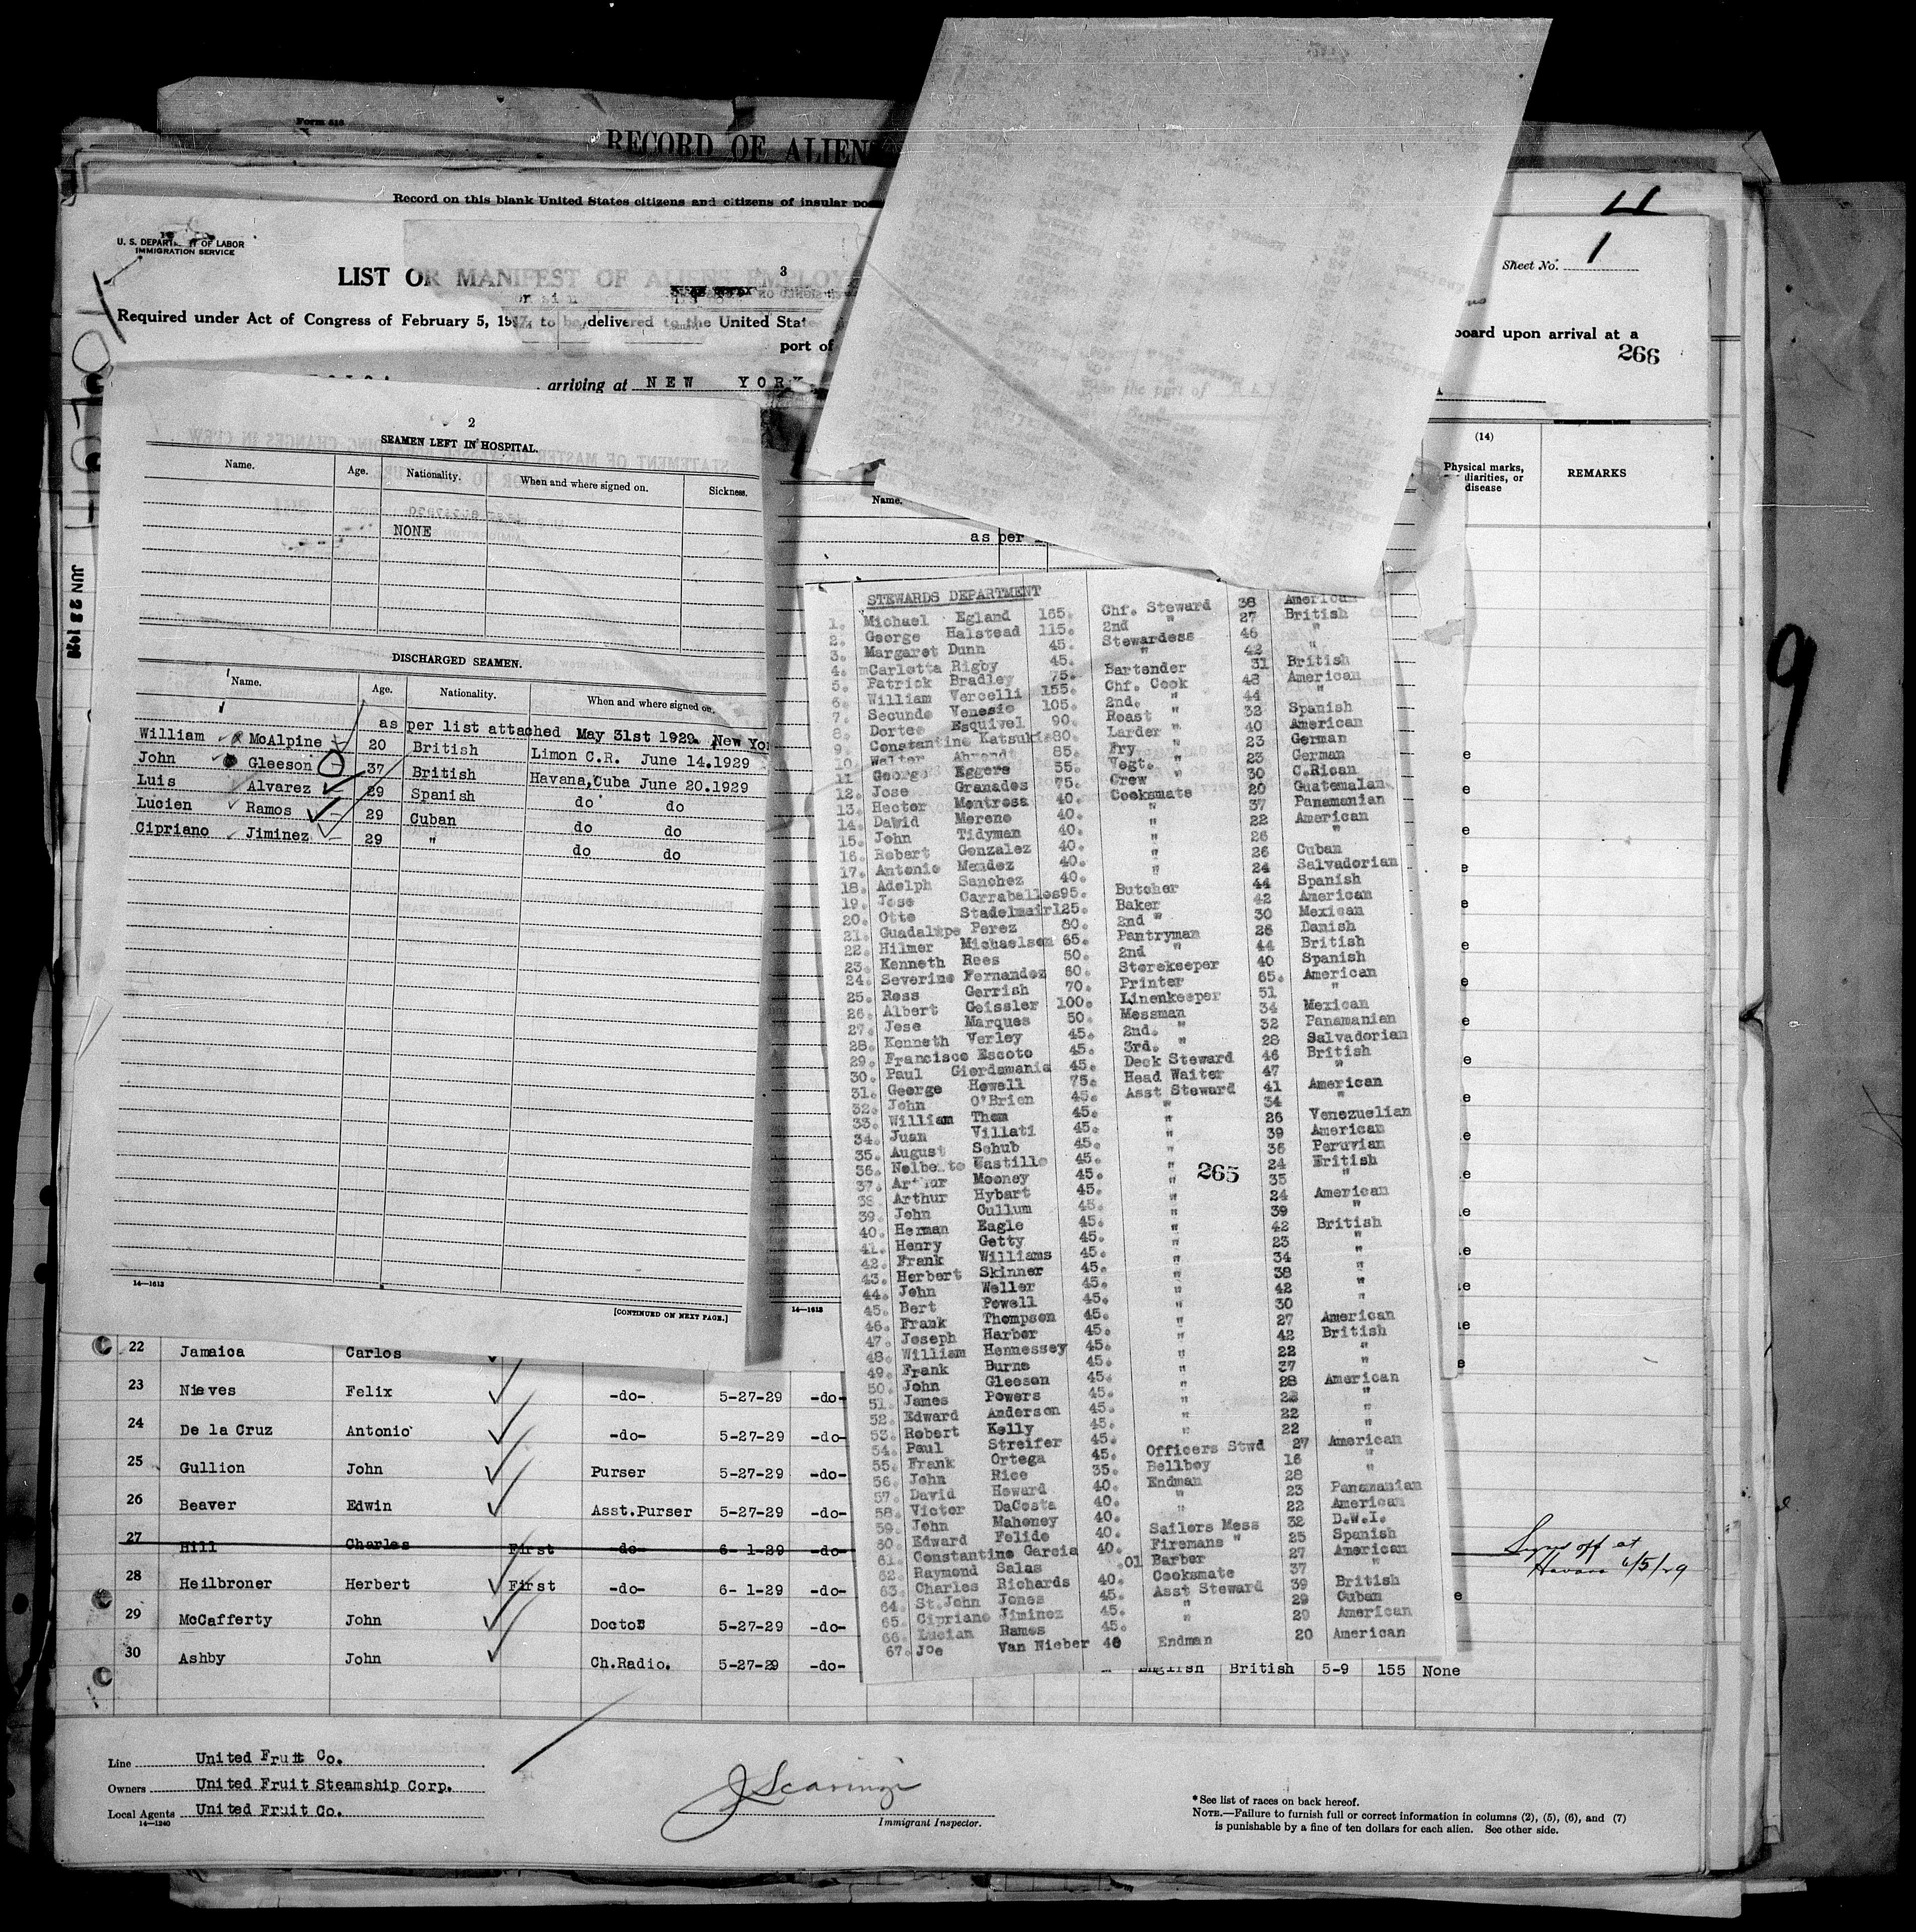 Form 618
RECORD OF ALIEN
Record on this blank United States citizens and citizens of insular
U. S. DEPARTMENT OF LABOR
IMMIGRATION SERVICE
LIST OR MANIFEST OF ALIENS EMPLOY
3
Sheet No. 1
Required under Act of Congress of February 5, 1917, to be delivered to the United States
board upon arrival at a
port of
266
arriving at NEW YORK
JUN 23 1929
9
2
SEAMEN LEFT IN HOSPITAL.
Name. Age. Nationality. When and where signed on. Sickness.
NONE
DISCHARGED SEAMEN.
Name. Age. Nationality. When and where signed on.
as per list attached May 31st 1929. New Yo
William McAlpine 20 British Limon C.R. June 14.1929
John Gleeson 37 British Havana,Cuba June 20.1929
Luis Alvarez 29 Spanish do do
Lucien Ramos 29 Cuban do do
Cipriano Jiminez 29 " do do
14—1613
[CONTINUED ON NEXT PAGE.]
14—1613
Name.
as per
(14)
Physical marks,
disease
REMARKS
STEWARDS DEPARTMENT
1. Michael Egland 165. Chf. Steward 38 American
2. George Halstead 115. 2nd " 27 British
3. Margaret Dunn 45. Stewardess 46 "
4. Carlotta Rigby 45. " 42 "
5. Patrick Bradley 75. Bartender 31 British
6. William Vercelli 155. Chf. Cook 48 American
7. Secundo Venesio 105. 2nd. " 44 "
8. Dorteo Esquivel 90. Roast " 32 Spanish
9. Constantine Katsukis 80. Larder " 40 American
10. Walter Ahrendt 85. Fry " 23 German
11 George Eggers 55. Vegt. " 23 German
12. Jose Granados 75. Crew " 30 C.Rican
13. Hector Montrosa 40. Cooksmate 20 Guatemalan
14. David Moreno 40. " 37 Panamanian
15. John Tidyman 40. " 22 American
16. Robert Gonzalez 40. " 26 "
17. Antonio Mendez 40. " 26 Cuban
18. Adolph Sanchez 40. " 24 Salvadorian
19. Jose Carraballos 95. Butcher 44 Spanish
20. Otto Stadelmair 125. Baker 42 American
21. Guadalupe Perez 80. 2nd " 30 Mexican
22. Hilmer Michaelsen 65. Pantryman 26 Danish
23. Kenneth Rees 50. 2nd " 44 British
24. Severino Fernandez 60. Storekeeper 40 Spanish
25. Ross Gerrish 70. Printer 65. American
26. Albert Geissler 100. Linenkeeper 51 "
27. Jose Marques 50. Messman 34 Mexican
28. Kenneth Verley 45. 2nd. " 32 Panamanian
29. Francisco Escoto 45. 3rd. " 28 Salvadorian
30. Paul Giordamania 45. Deck Steward 46 British
31. George Howell 75. Head Waiter 47 "
32. John O'Brien 45. Asst Steward 41 American
33. William Thom 45. " 34 "
34. Juan Villati 45. " 26 Venezuelian
35. August Schub 45. " 39 American
36. Nolberto Castillo 45. " 36 Peruvian
37. Arthur Mooney 45. " 24 British
265
38. Arthur Hybart 45. " 35 "
39. John Cullum 45. " 24 American
40. Herman Eagle 45. " 39 "
41. Henry Getty 45. " 42 British
42. Frank Williams 45. " 23 "
43. Herbert Skinner 45. " 34 "
44. John Weller 45. " 38 "
45. Bert Powell 45. " 42 "
46. Frank Thompson 45. " 30 "
47. Joseph Harber 45. " 27 American
48. William Hennessey 45. " 42 British
49. Frank Burns 45. " 22 "
50. John Gleeson 45. " 37 "
51. James Powers 45. " 28 American
52. Edward Anderson 45. " 22 "
53. Robert Kelly 45. " 22 "
54. Paul Streifer 45. " 22 "
55. Frank Ortega 45. Officers Stwd 27 American
56. John Rice 35. Bellboy 16 "
57. David Howard 40. Endman 28 "
58. Victor DaCosta 40. " 23 Panamanian
59. John Mahoney 40. " 22 American
60. Edward Felide 40. Sailors Mess 32 D.W.I.
61. Constantino Garcia 40. Firemans " 25 Spanish
62. Raymond Salas .01 Barber 27 American
63. Charles Richards 40. Cooksmate 37 "
64. St.John Jones 45. Asst Steward 39 British
65. Cipriano Jiminez 45. " 29 Cuban
66. Lucian Ramos 45. " 29 American
67. Joe Van Nieber 40 Endman 20 American
22 Jamaica Carlos
23 Nieves Felix -do- 5-27-29 -do-
24 De la Cruz Antonio -do- 5-27-29 -do-
25 Gullion John Purser 5-27-29 -do-
26 Beaver Edwin Asst.Purser 5-27-29 -do-
27 Hill Charles First -do- 6- 1-29 -do- Signed off at Havana 6/5/29
28 Heilbroner Herbert First -do- 6- 1-29 -do-
29 McCafferty John Doctor 5-27-29 -do-
30 Ashby John Ch.Radio. 5-27-29 -do- English British 5-9 155 None
Line United Fruit Co.
Owners United Fruit Steamship Corp.
Local Agents United Fruit Co.
14—1240
Immigrant Inspector.
*See list of races on back hereof.
NOTE.—Failure to furnish full or correct information in columns (2), (5), (6), and (7)
is punishable by a fine of ten dollars for each alien. See other side.